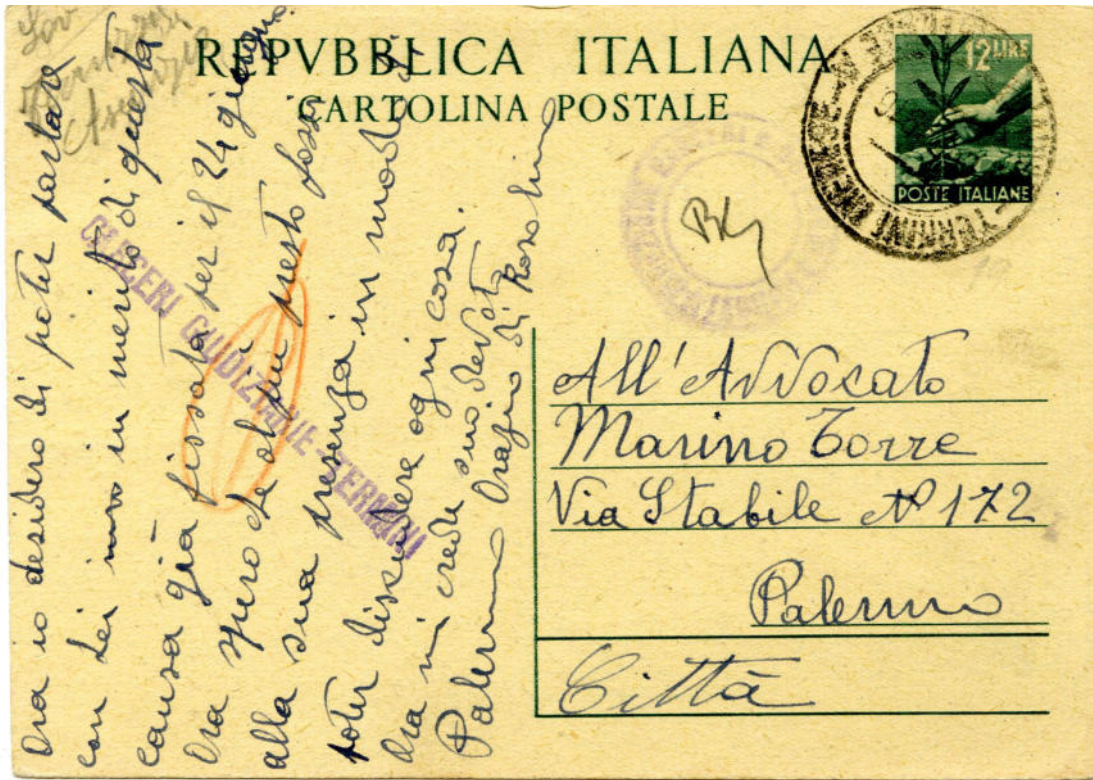 REPVBBLICA ITALIANA
CARTOLINA POSTALE
12 LIRE
POSTE ITALIANE
TERMINI IMERESE
CARCERI GIUDIZIARIE - TERMINI
All'Avvocato
Marino Torre
Via Stabile Nº 172
Palermo
Città
Ora io desidero di poter parlare
con Lei in merito di questa
causa già fissata per il 24 giugno.
Ora spero che al più presto possa
alla sua presenza in modo di
poter discutere ogni cosa.
Ora mi creda suo devoto
Palermo di Rosolino